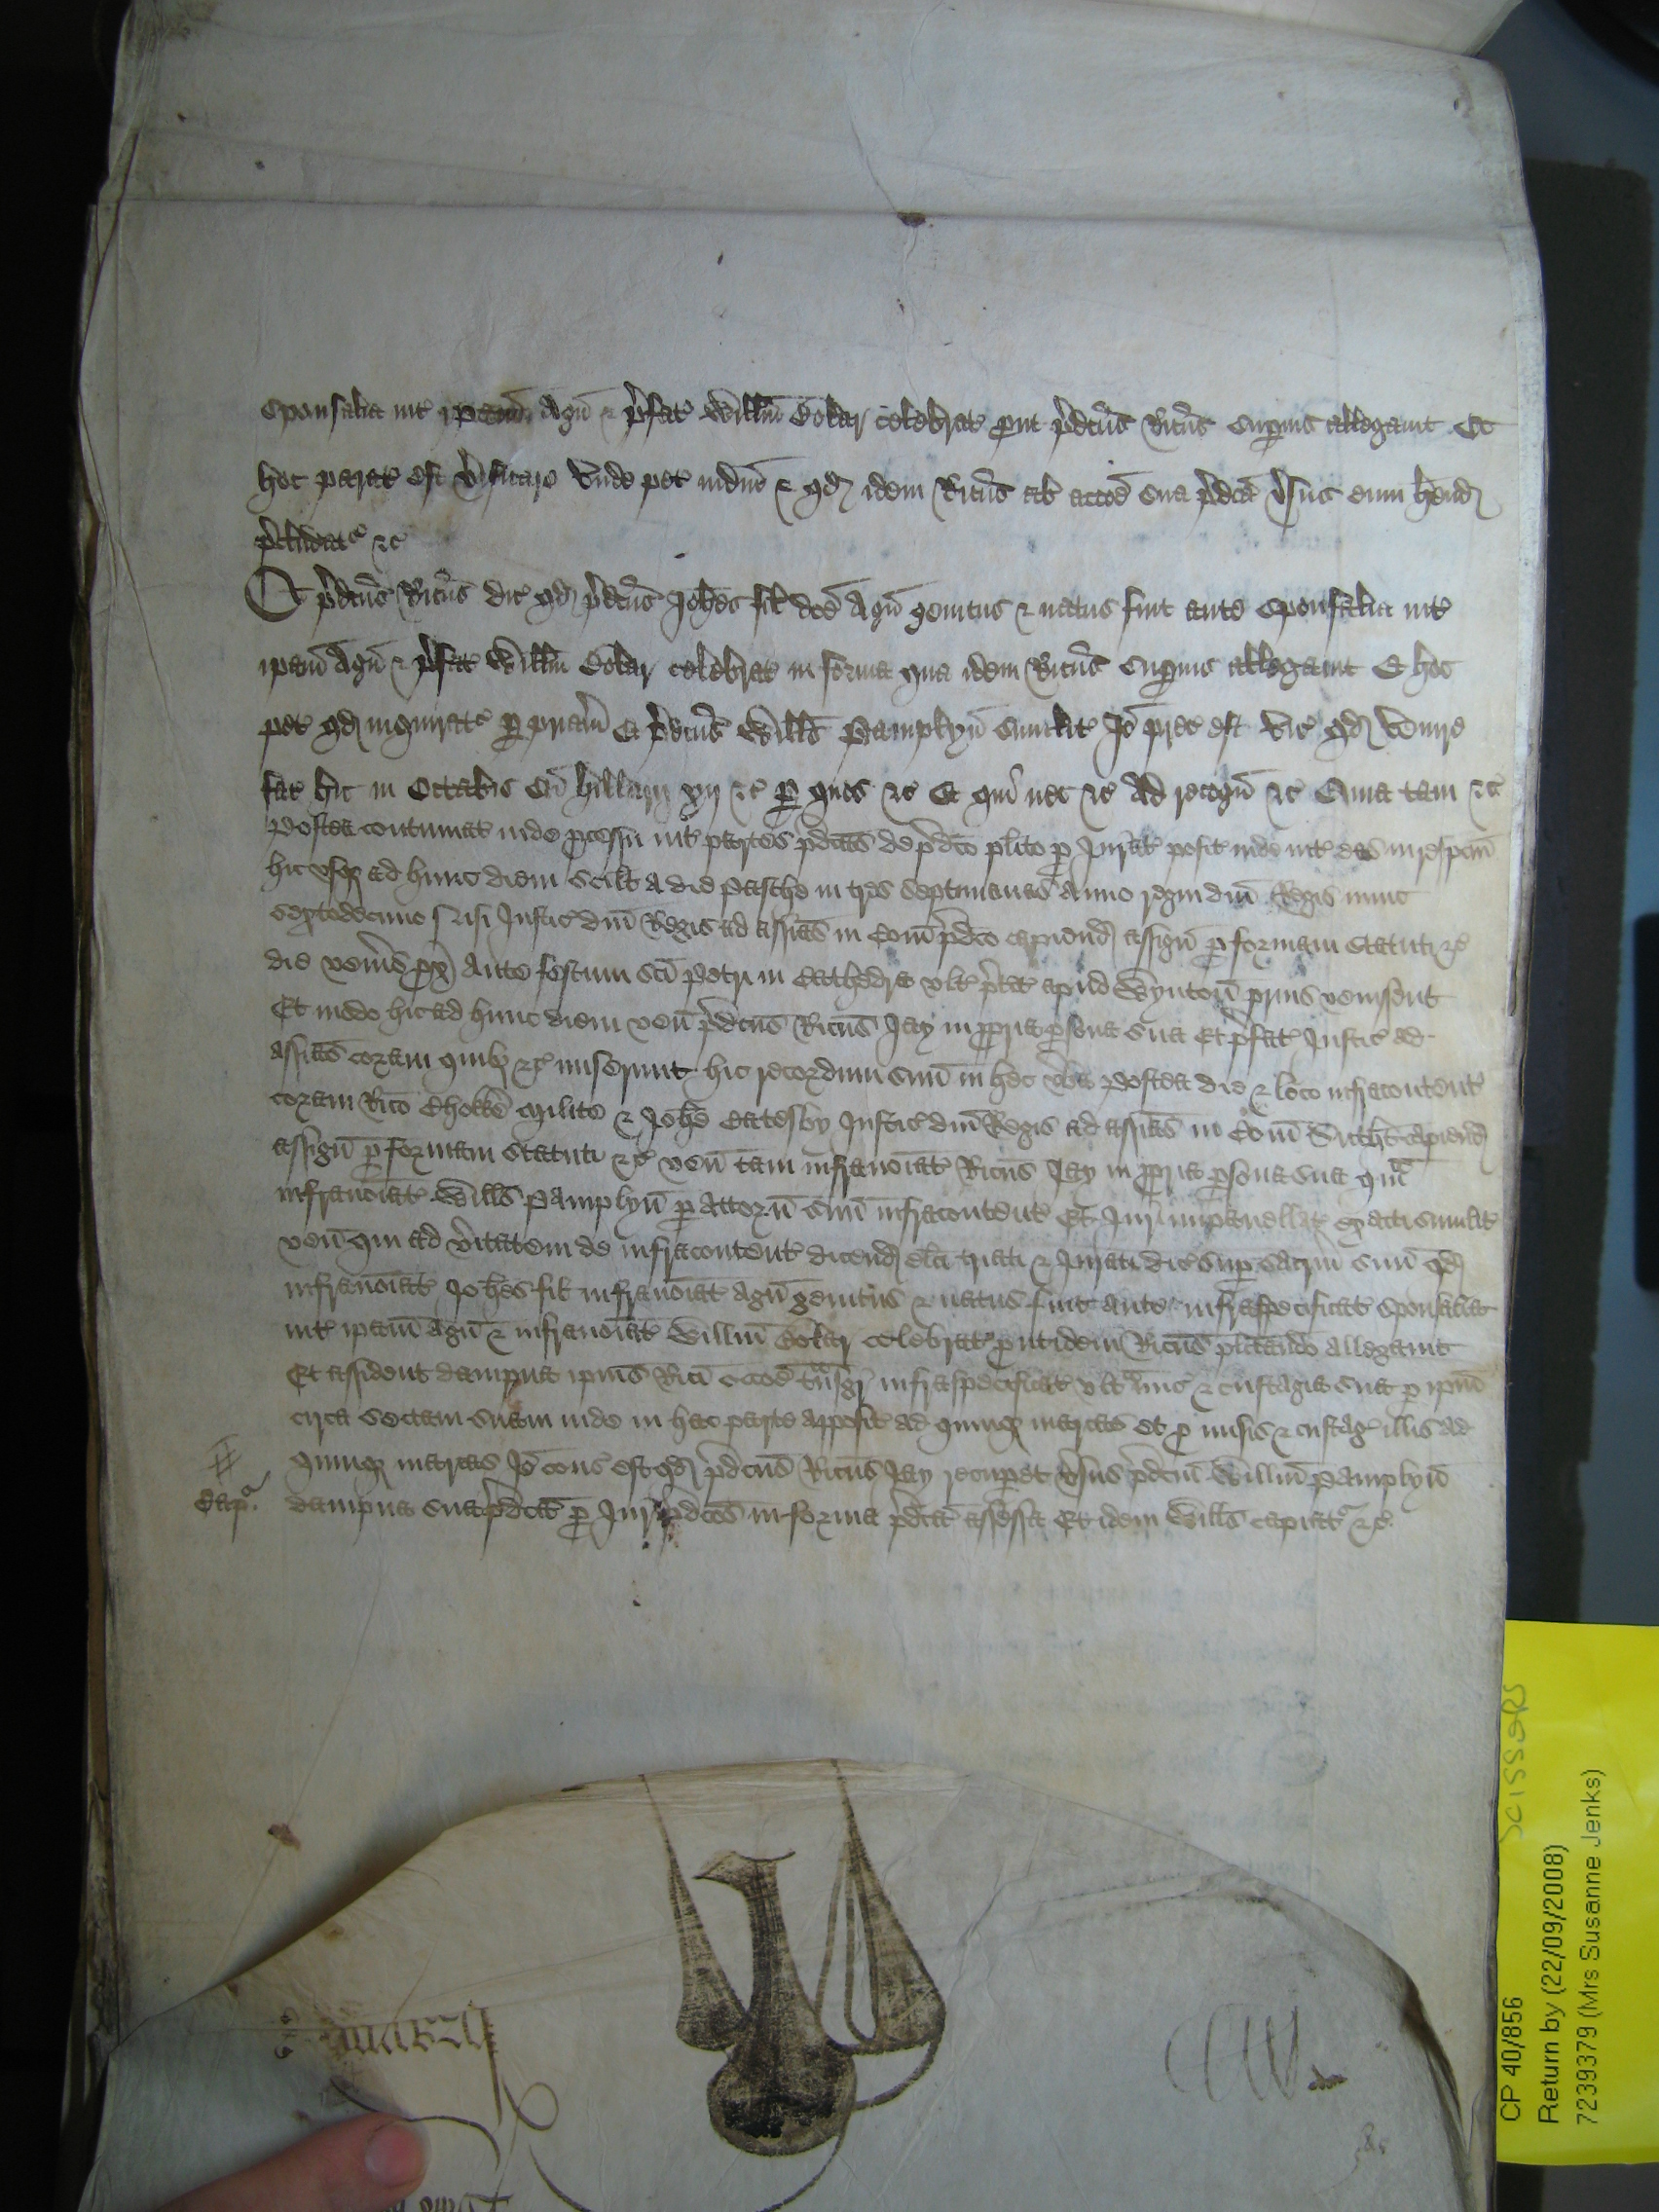 sponsalia int' ip̄am Agñ & p̄fat' Willm̄ Cokay celebrat' put p̄dcūs Ric̄us supius allegavit Et
hoc parat' est v̄ificare vnde pet' iudm̄ & qd̄ idem Ric̄us ab acc̄oe sua p̄dc̄a v̄sus eum h̄end
p̄cludat' &c
Et p̄dcūs Ric̄us dic' qd̄ p̄dcūs Joh̄es fil' dc̄e Agñ genitus & natus fuit ante sponsalia int'
ip̄am Agñ & p̄fat' Willm̄ Cokay celebrat' in forma qua idem Ric̄us supius allegavit Et hoc
pet' qd̄ inquirat' p priam̄ Et p̄dcūs Wills̄ Pamplyn̄ similit' Jo p̄cept' est vic' qd̄ venire
fac' hic in Octabis sc̄i Hillarij xij &c p quos &c Et qui nec &c Ad recogñ &c Quia tam &c
Postea continuat' inde p̄cessu int' partes p̄dc̄as de p̄dc̄o plito p Jur̄at' posit' inde int' eas in respc̄m
hic vsq ad hunc diem scilt A die Pasche in tres septimanas Anno regni dn̄i Regis nunc
sextodecimo Nisi Justic' dn̄i Regis ad assīas in Com̄ p̄dc̄o capiend assigñ p formam statuti &c
die ven̄is px̄ Ante festum sc̄i Petri in Cathedra vlt' p̄tit' apud Wynton̄ prius venissent
Et modo hic ad hunc diem ven̄ p̄dcūs Ric̄us Jay in ppria psona sua Et p̄fat' Justic' ad
assīas coram quib &c miserunt hic recordum suū in hec v̄ba Postea die & loco infracontent'
coram Ric̄o Chokke Milite & Joh̄e Catesby Justic' dn̄i Regis ad assīas in Com̄ Suth̄t capiend
assigñ p formam statuti &c ven̄ tam infranoīat' Ric̄us Jay in ppria psona sua qm̄
infranoīat' Wills̄ Pamplyn̄ p Attorn̄ suū infracontent' Et Jur̄ impanellat' exacti similit'
ven̄ qui ad v̄itatem de infracontent' dicend elc̄i triati & Jurati dic' sup sacrm̄ suū qd̄
infranoīat' Joh̄es fil' infranoīat' Agñ genitus & natus fuit ante infraspecificat' sponsalia
int' ip̄am Agñ & infranoīat' Willm̄ Cokay celebrat' put idem Ric̄us plitando allegavit
Et assident dampna ipius Ric̄i occōe tn̄sgr̄ infraspecificat' vltra mis' & custagia sua p ip̄m
circa sectam suam inde in hac parte apposit' ad quinq marcas et p misis & custag' illis ad
quinq marcas Jo cons' est qd̄ p̄dcūs Ric̄us Jay recupet v̄sus p̄dcm̄ Willm̄ Pamplyn̄
Capr' dampna sua p̄dc̄a p Jur̄ p̄dc̄os in forma p̄dc̄a assessa Et idem Wills̄ capiat' &c
CP 40/856
Return by (22/09/2008)
7239379 (Mrs Susanne Jenks)
SCISSORS